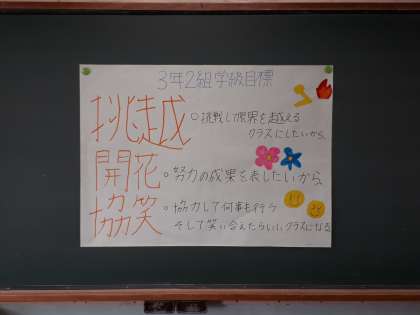 3年2組学級目標
挑越
○挑戦して限界を越える
クラスにしたいから。
開花
○努力の成果を表したいから。
協笑
○協力して何事も行う
そして笑い合えたらいいクラスになる